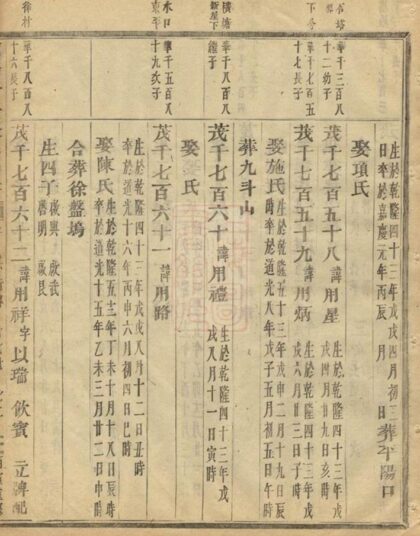 華千三百八
十二幼子
華千七百五
十七長子
橫塘
新屋下
華千八百八
繼子
水口
華千五百八
十九次子
徐村
華千八百八
十六長子
生於乾隆四十三年戊戌四月初三
日卒於嘉慶元年丙辰 四月 初 日 葬平陽口
娶項氏
茂千七百五十八 諱用星 生於乾隆四十三年戊
戌四月廿九日亥時
茂千七百五十九 諱用炳 生於乾隆四十三年戊
戌六月廿三日子時
娶施氏 生於乾隆五十三年戊申二月十九日辰
時卒於道光八年戊子五月初五日午時
葬九斗山
茂千七百六十 諱用禮 生於乾隆四十三年戊
戌八月十一日寅時
娶 氏
茂千七百六十一 諱用
生於乾隆四十三年戊戌八月十二日丑時
卒於道光十六年丙申六月初四日巳時
娶陳氏 生於乾隆五 年丁未十月十八日辰時
卒於道光十五年乙未三月廿二日申時
合葬徐盤塢
生四子 啟興 啟武
啟明 啟良
茂千七百六十二 諱用祥字以瑞 飲賓 立牌配